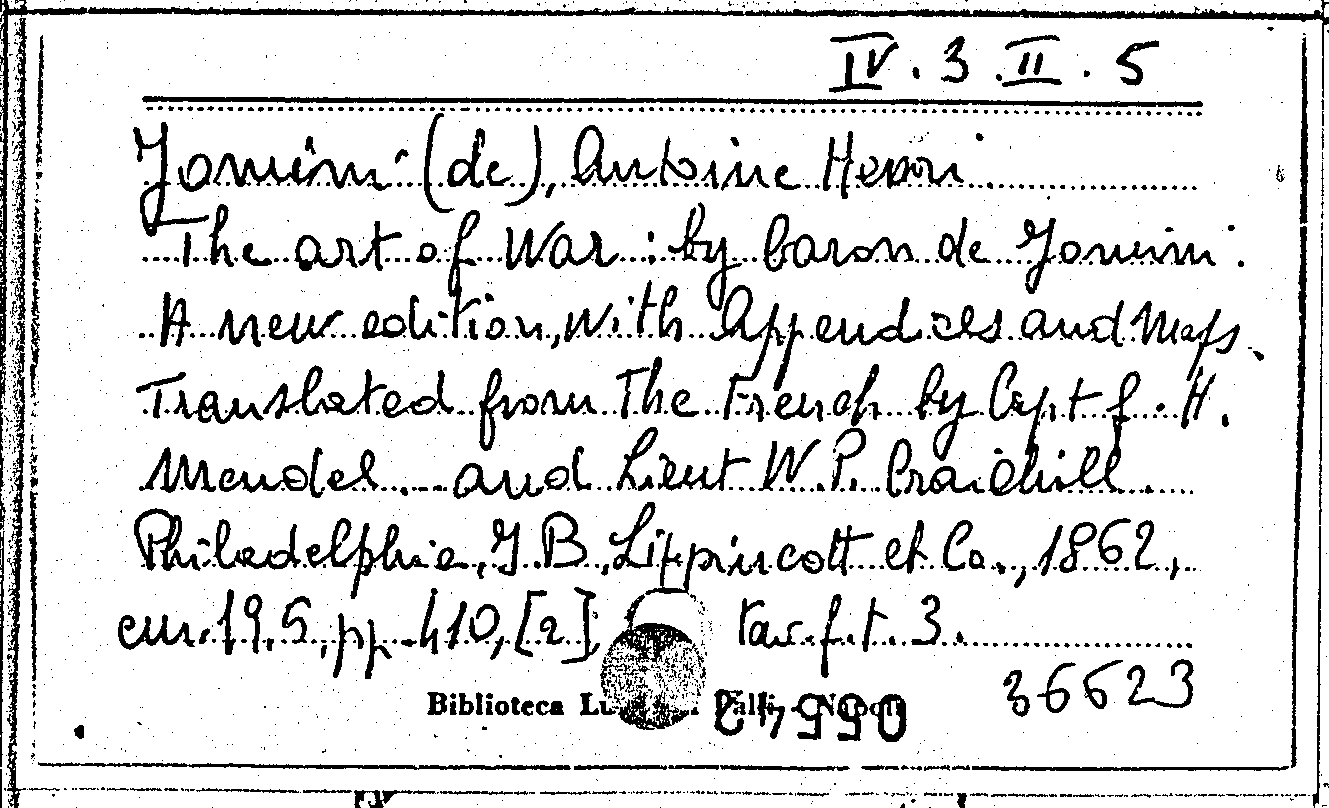 IV.3.II.5
Jomini (de), Antoine Henri
The art of War: by baron de Jomini.
A new edition, with Appendices and Maps.
Translated from the French by Capt J. H.
Mendel and Lieut W. P. Craighill
Philadelphie, J. B. Lippincott et Co., 1862,
cm. 19,5, pp. 410, [2], tav. f. t. 3.
36623
Biblioteca